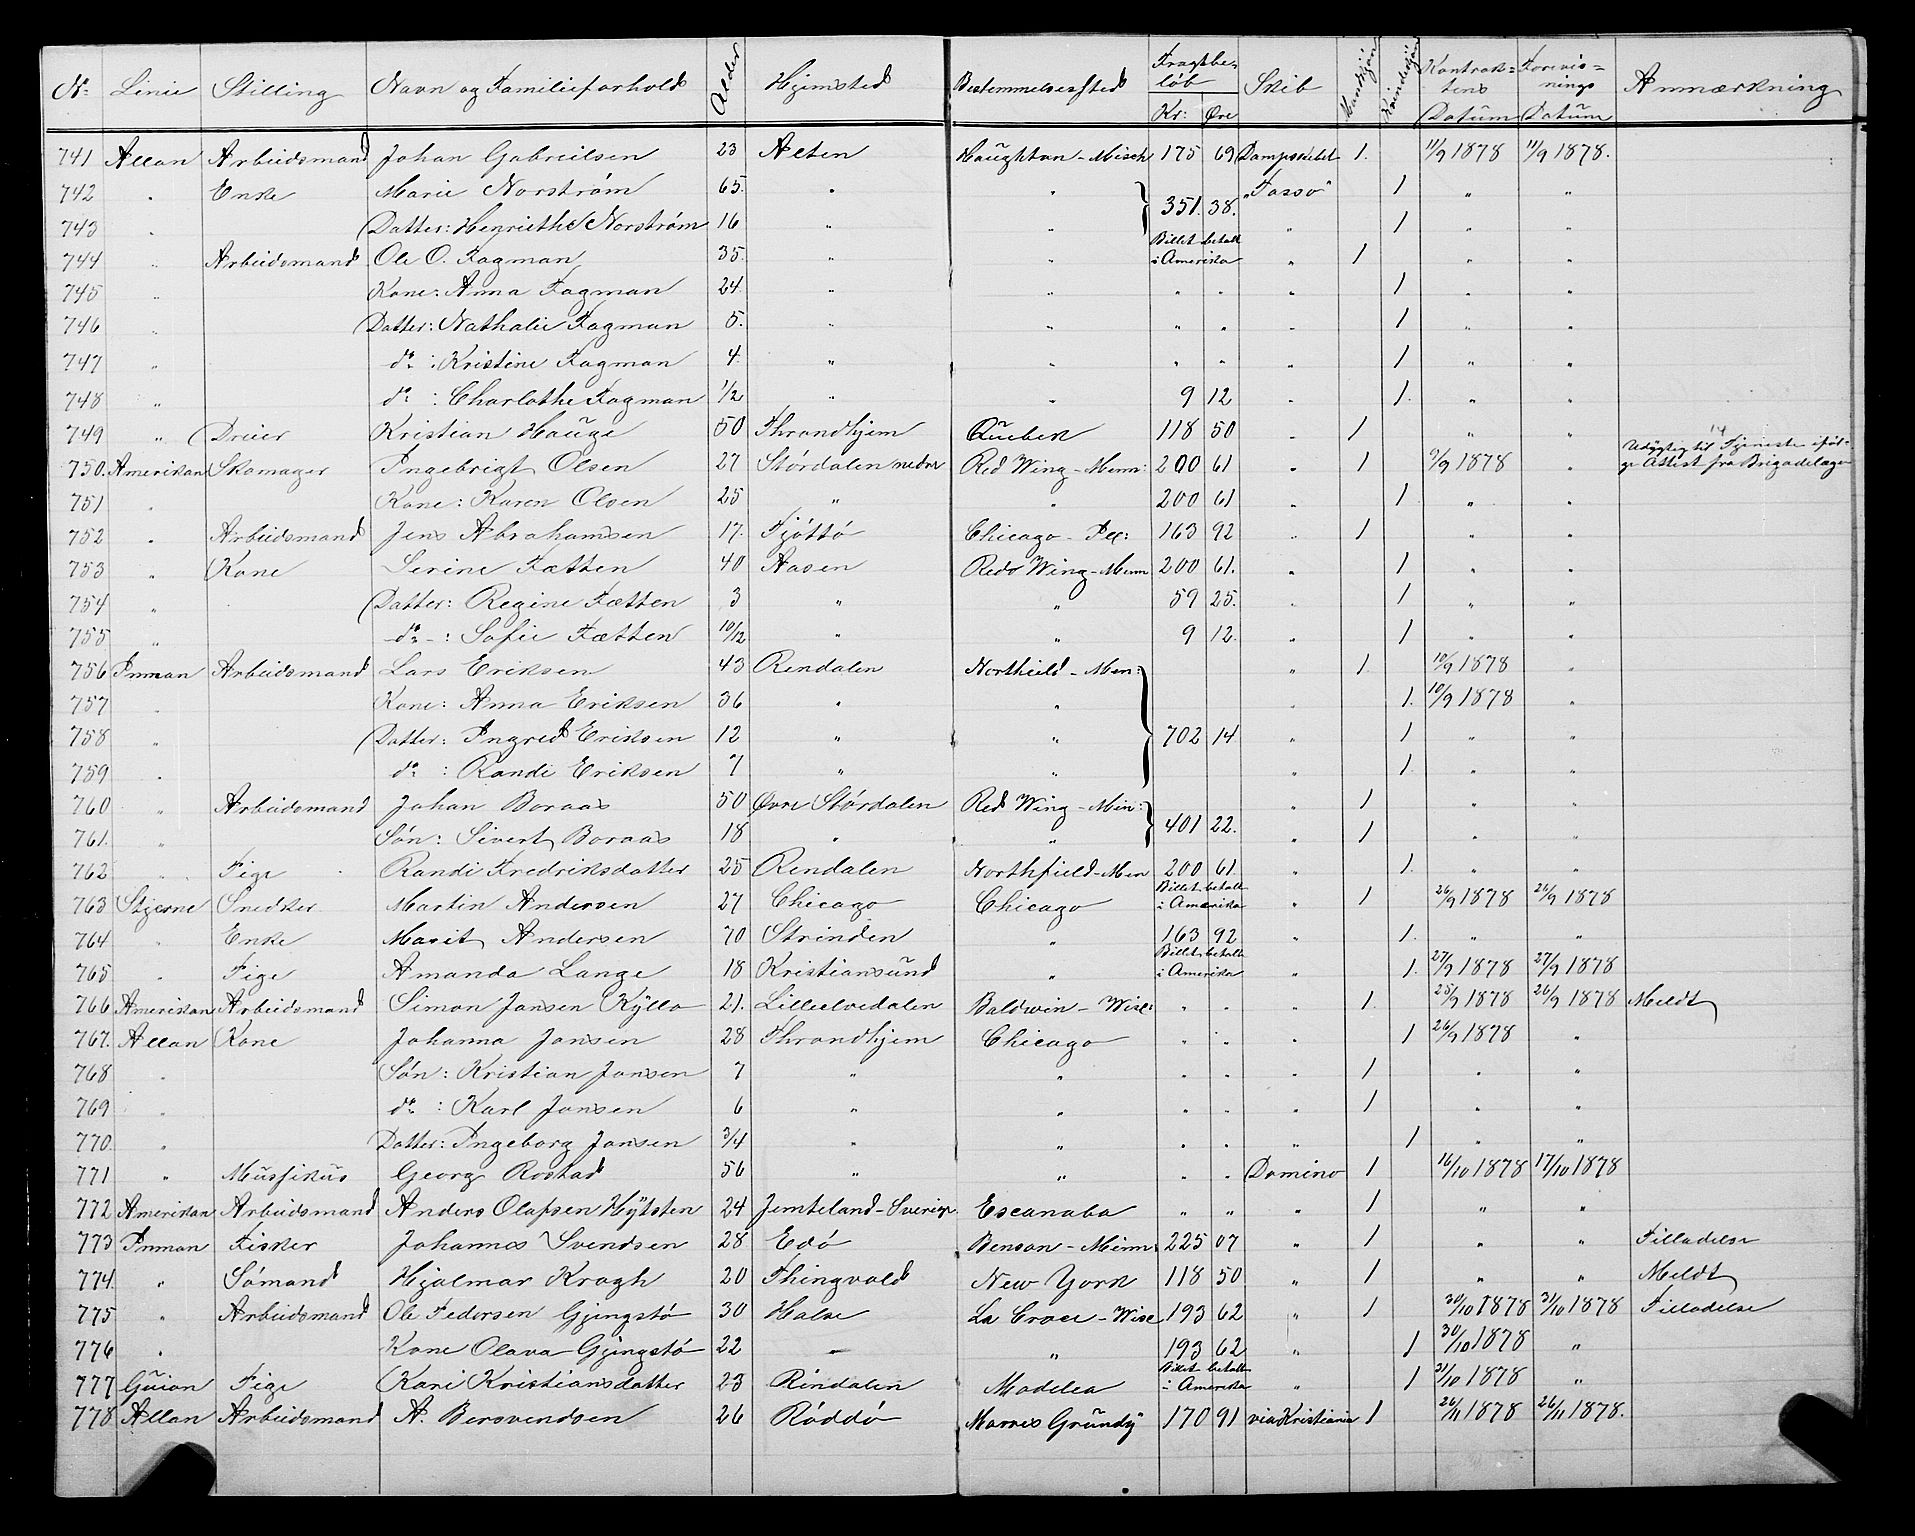 No. Linie Stilling Navn og Familieforhold Alder Hjemsted Bestemmelsessted Fragtbeløb Kr: Øre Skib Mandkjøn Kvindekjøn Kontraktens Datum Forevisnings Datum Anmærkning
741 Allan Arbeidsmand Johan Gabrielsen 23 Alten Haughton - Misch 175 69 Dampskibet 1. 11/9 1878 11/9 1878.
742 " Enke Marie Norstrøm 65. " " } 351. 38. "Tasso" 1 " "
743 " Datter: Henriethe Norstrøm 16 " " " 1 " "
744 " Arbeidsmand Ole O. Fagman 35. " " Billet betalt i Amerika " 1 " "
745 " Kone: Anna Fagman 24 " " " " " 1 " "
746 " Datter: Nathalie Fagman 5. " " " " " 1 " "
747 " do : Kristine Fagman 4 " " " " " 1 " "
748 " do : Charlothe Fagman 1/2 " " 9 12 " 1. " "
749 " Dreier Kristian Hauge 50 Throndhjem Quebek 118 50 " 1 " "
750. Amerikan Skomager Ingebrigt Olsen 27 Størdalen nedre Red Wing - Menn: 200 61 " 1 9/9 1878 " Udygtig til Tjeneste iføl-
ge Attest fra Brigadelæge
751 " Kone: Karen Olsen 25 " " 200 61 " 1 " "
752 " Arbeidsmand Jens Abrahamsen 17. Tjøttø Chicago - Ill: 163 92 " 1 " "
753 " Kone Serine Fætten 40 Aasen Red Wing - Menn 200 61. " 1 " "
754 " Datter: Regine Fætten 3 " " 59 25. " 1 " "
755 " do - : Sofie Fætten 10/12 " " 9 12. " 1 " "
756 Inman Arbeidsmand Lars Eriksen 43 Rendalen Northield - Men: " 1. 10/9 1878 "
757 " Kone: Anna Eriksen 36 " " " 1. 10/9 1878 "
758 " Datter: Ingred Eriksen 12 " " } 702 14. " 1 " "
759 " do : Randi Eriksen 7 " " " 1. " "
760 " Arbeidsmand Johan Boraas 50 Øvre Størdalen Red Wing - Min: " 1 " "
761. " Søn: Sivert Boraas 18 " " } 401 22. " 1 " "
762 " Pige Randi Fredriksdatter 25 Rendalen Northfield - Men 200 61. " 1. " "
763 Stjerne Snedker Martin Andersen 27 Chicago Chicago Billet betalt i Amerika " 1 26/9 1878 26/9 1878
764 " Enke Marit Andersen 70 Strinden " 163 92 " 1. " "
765 " Pige Amanda Lange 18 Kristiansund " Billet betalt i Amerika " 1. 27/9 1878 27/9 1878
766 Amerikan Arbeidsmand Simon Jansen Kÿllo 21. Lilleelvedalen Baldwin - Wisc: " " " 1. 25/9 1878 26/9 1878 Meldt
767. Allan Kone Johanna Jansen 28 Throndhjem Chicago " " " 1 26/9 1878 "
768 " Søn: Kristian Jansen 7 " " " " " 1 " "
769 " do : Karl Jansen 6 " " " " " 1 " "
770. " Datter: Ingeborg Jansen 3/4 " " " " " 1 " "
771 " Mussikus Georg Rostad 56 " " " " Domino 1 16/10 1878 17/10 1878
772 Amerikan Arbeidsmand Anders Olafsen Hÿtsten 24 Jemteland - Sverige Escanaba " " " 1 " "
773 Inman Fisker Johannes Svendsen 28. Edø Benson - Minn: 225 07 " 1 " " Tilladelse
774. " Sømand Hjalmar Krogh 20 Thingvold New York 118 50 " 1 " " Meldt
775 " Arbeidsmand Ole Pedersen Gjengstø 30 Halse La Croce - Wisc 193 62 " 1 30/10 1878 31/10 1878 Tilladelse
776 " Kone Olava Gjengstø 22 " " 193 62 " 1 30/10 1878 "
777 Guion Pige Kari Kristiansdatter 23 Rindalen Madelea Billet betalt i Amerika " 1 31/10 1878 "
778 Allan Arbeidsmand A. Bersvendsen 26 Røddø Morres Grundÿ 170 91 via Kristiania 1 26/11 1878 26/11 1878.